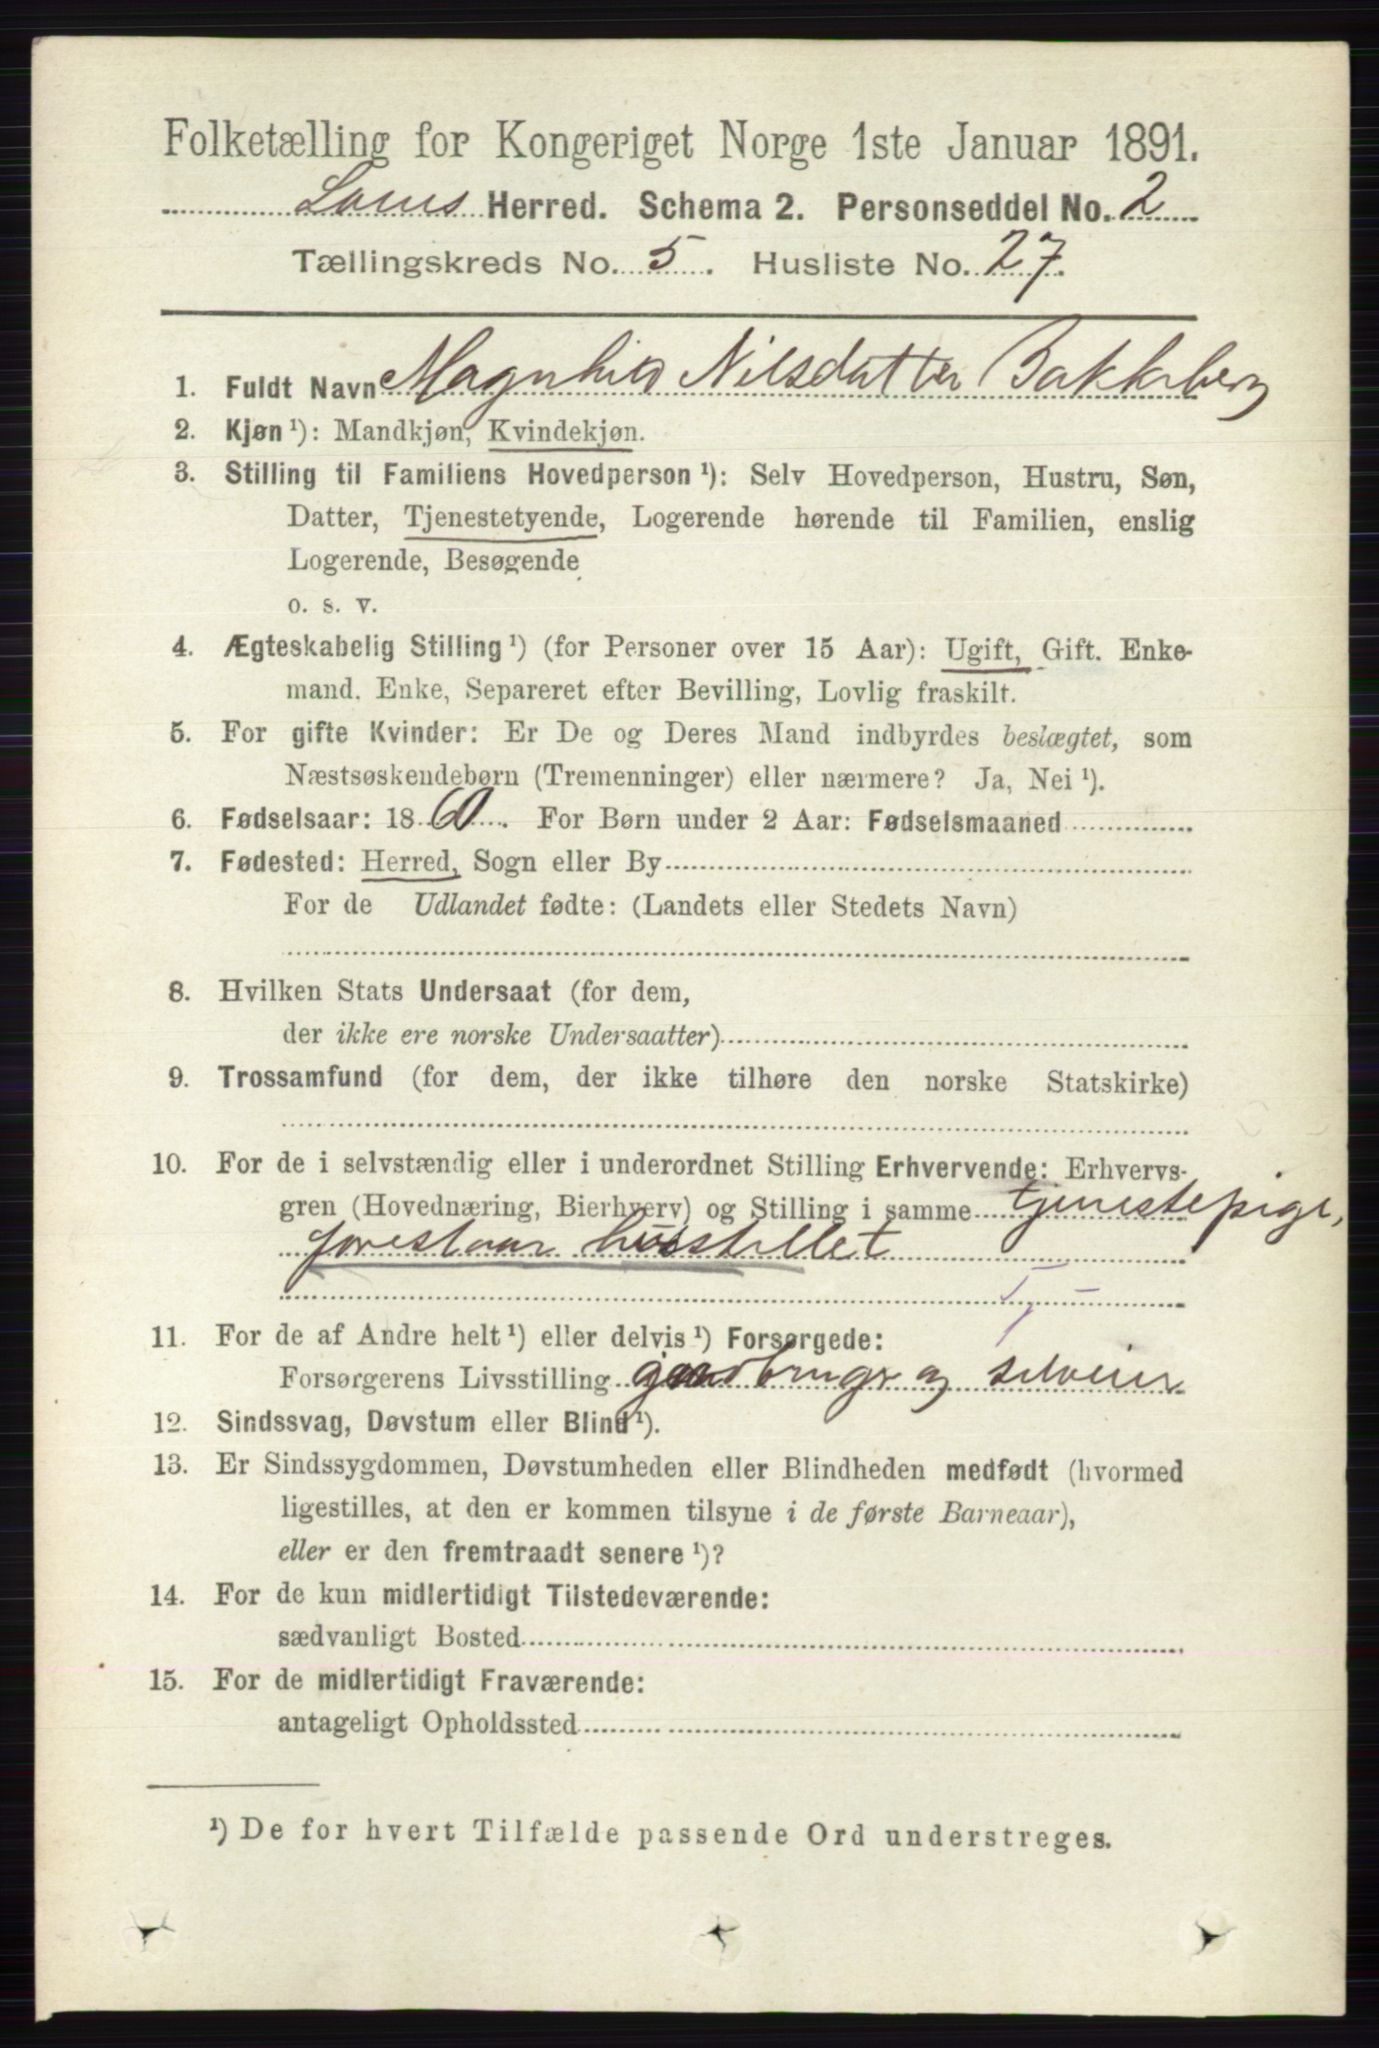 Folketælling for Kongeriget Norge 1ste Januar 1891.
Loms Herred. Schema 2. Personseddel No. 2
Tællingskreds No. 5. Husliste No. 27.
1. Fuldt Navn Magnhild Nilsdatter Bakkeberg
2. Kjøn ¹): Mandkjøn, Kvindekjøn.
3. Stilling til Familiens Hovedperson ¹): Selv Hovedperson, Hustru, Søn,
Datter, Tjenestetyende, Logerende hørende til Familien, enslig
Logerende, Besøgende
o. s. v.
4. Ægteskabelig Stilling ¹) (for Personer over 15 Aar): Ugift, Gift. Enke-
mand. Enke, Separeret efter Bevilling, Lovlig fraskilt.
5. For gifte Kvinder: Er De og Deres Mand indbyrdes beslægtet, som
Næstsøskendebørn (Tremenninger) eller nærmere? Ja, Nei ¹).
6. Fødselsaar: 1860. For Børn under 2 Aar: Fødselsmaaned
7. Fødested: Herred, Sogn eller By
For de Udlandet fødte: (Landets eller Stedets Navn)
8. Hvilken Stats Undersaat (for dem,
der ikke ere norske Undersaatter)
9. Trossamfund (for dem, der ikke tilhøre den norske Statskirke)
10. For de i selvstændig eller i underordnet Stilling Erhvervende: Erhvervs-
gren (Hovednæring, Bierhverv) og Stilling i samme tjenestepige,
forestaar husstellet
11. For de af Andre helt ¹) eller delvis ¹) Forsørgede:
Forsørgerens Livsstilling gaardbruger og selveier
12. Sindssvag, Døvstum eller Blind ¹).
13. Er Sindssygdommen, Døvstumheden eller Blindheden medfødt (hvormed
ligestilles, at den er kommen tilsyne i de første Barneaar),
eller er den fremtraadt senere ¹)?
14. For de kun midlertidigt Tilstedeværende:
sædvanligt Bosted
15. For de midlertidigt Fraværende:
antageligt Opholdssted
¹) De for hvert Tilfælde passende Ord understreges.